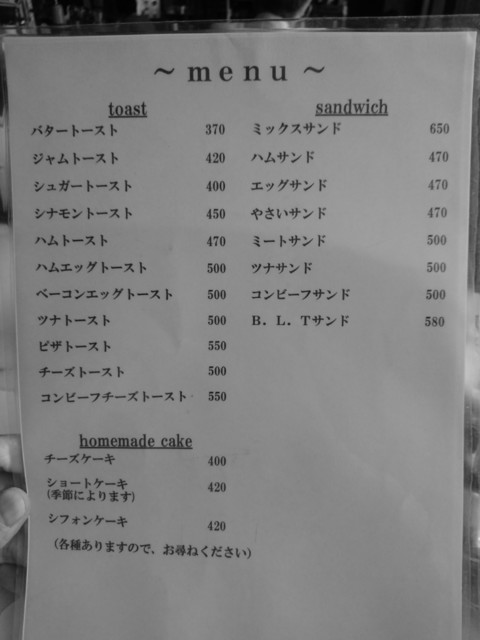 ～menu～
toast
バタートースト 370
ジャムトースト 420
シュガートースト 400
シナモントースト 450
ハムトースト 470
ハムエッグトースト 500
ベーコンエッグトースト 500
ツナトースト 500
ピザトースト 550
チーズトースト 500
コンビーフチーズトースト 550
homemade cake
チーズケーキ 400
ショートケーキ 420
(季節によります)
シフォンケーキ 420
(各種ありますので、お尋ねください)
sandwich
ミックスサンド 650
ハムサンド 470
エッグサンド 470
やさいサンド 470
ミートサンド 500
ツナサンド 500
コンビーフサンド 500
B．L．Tサンド 580